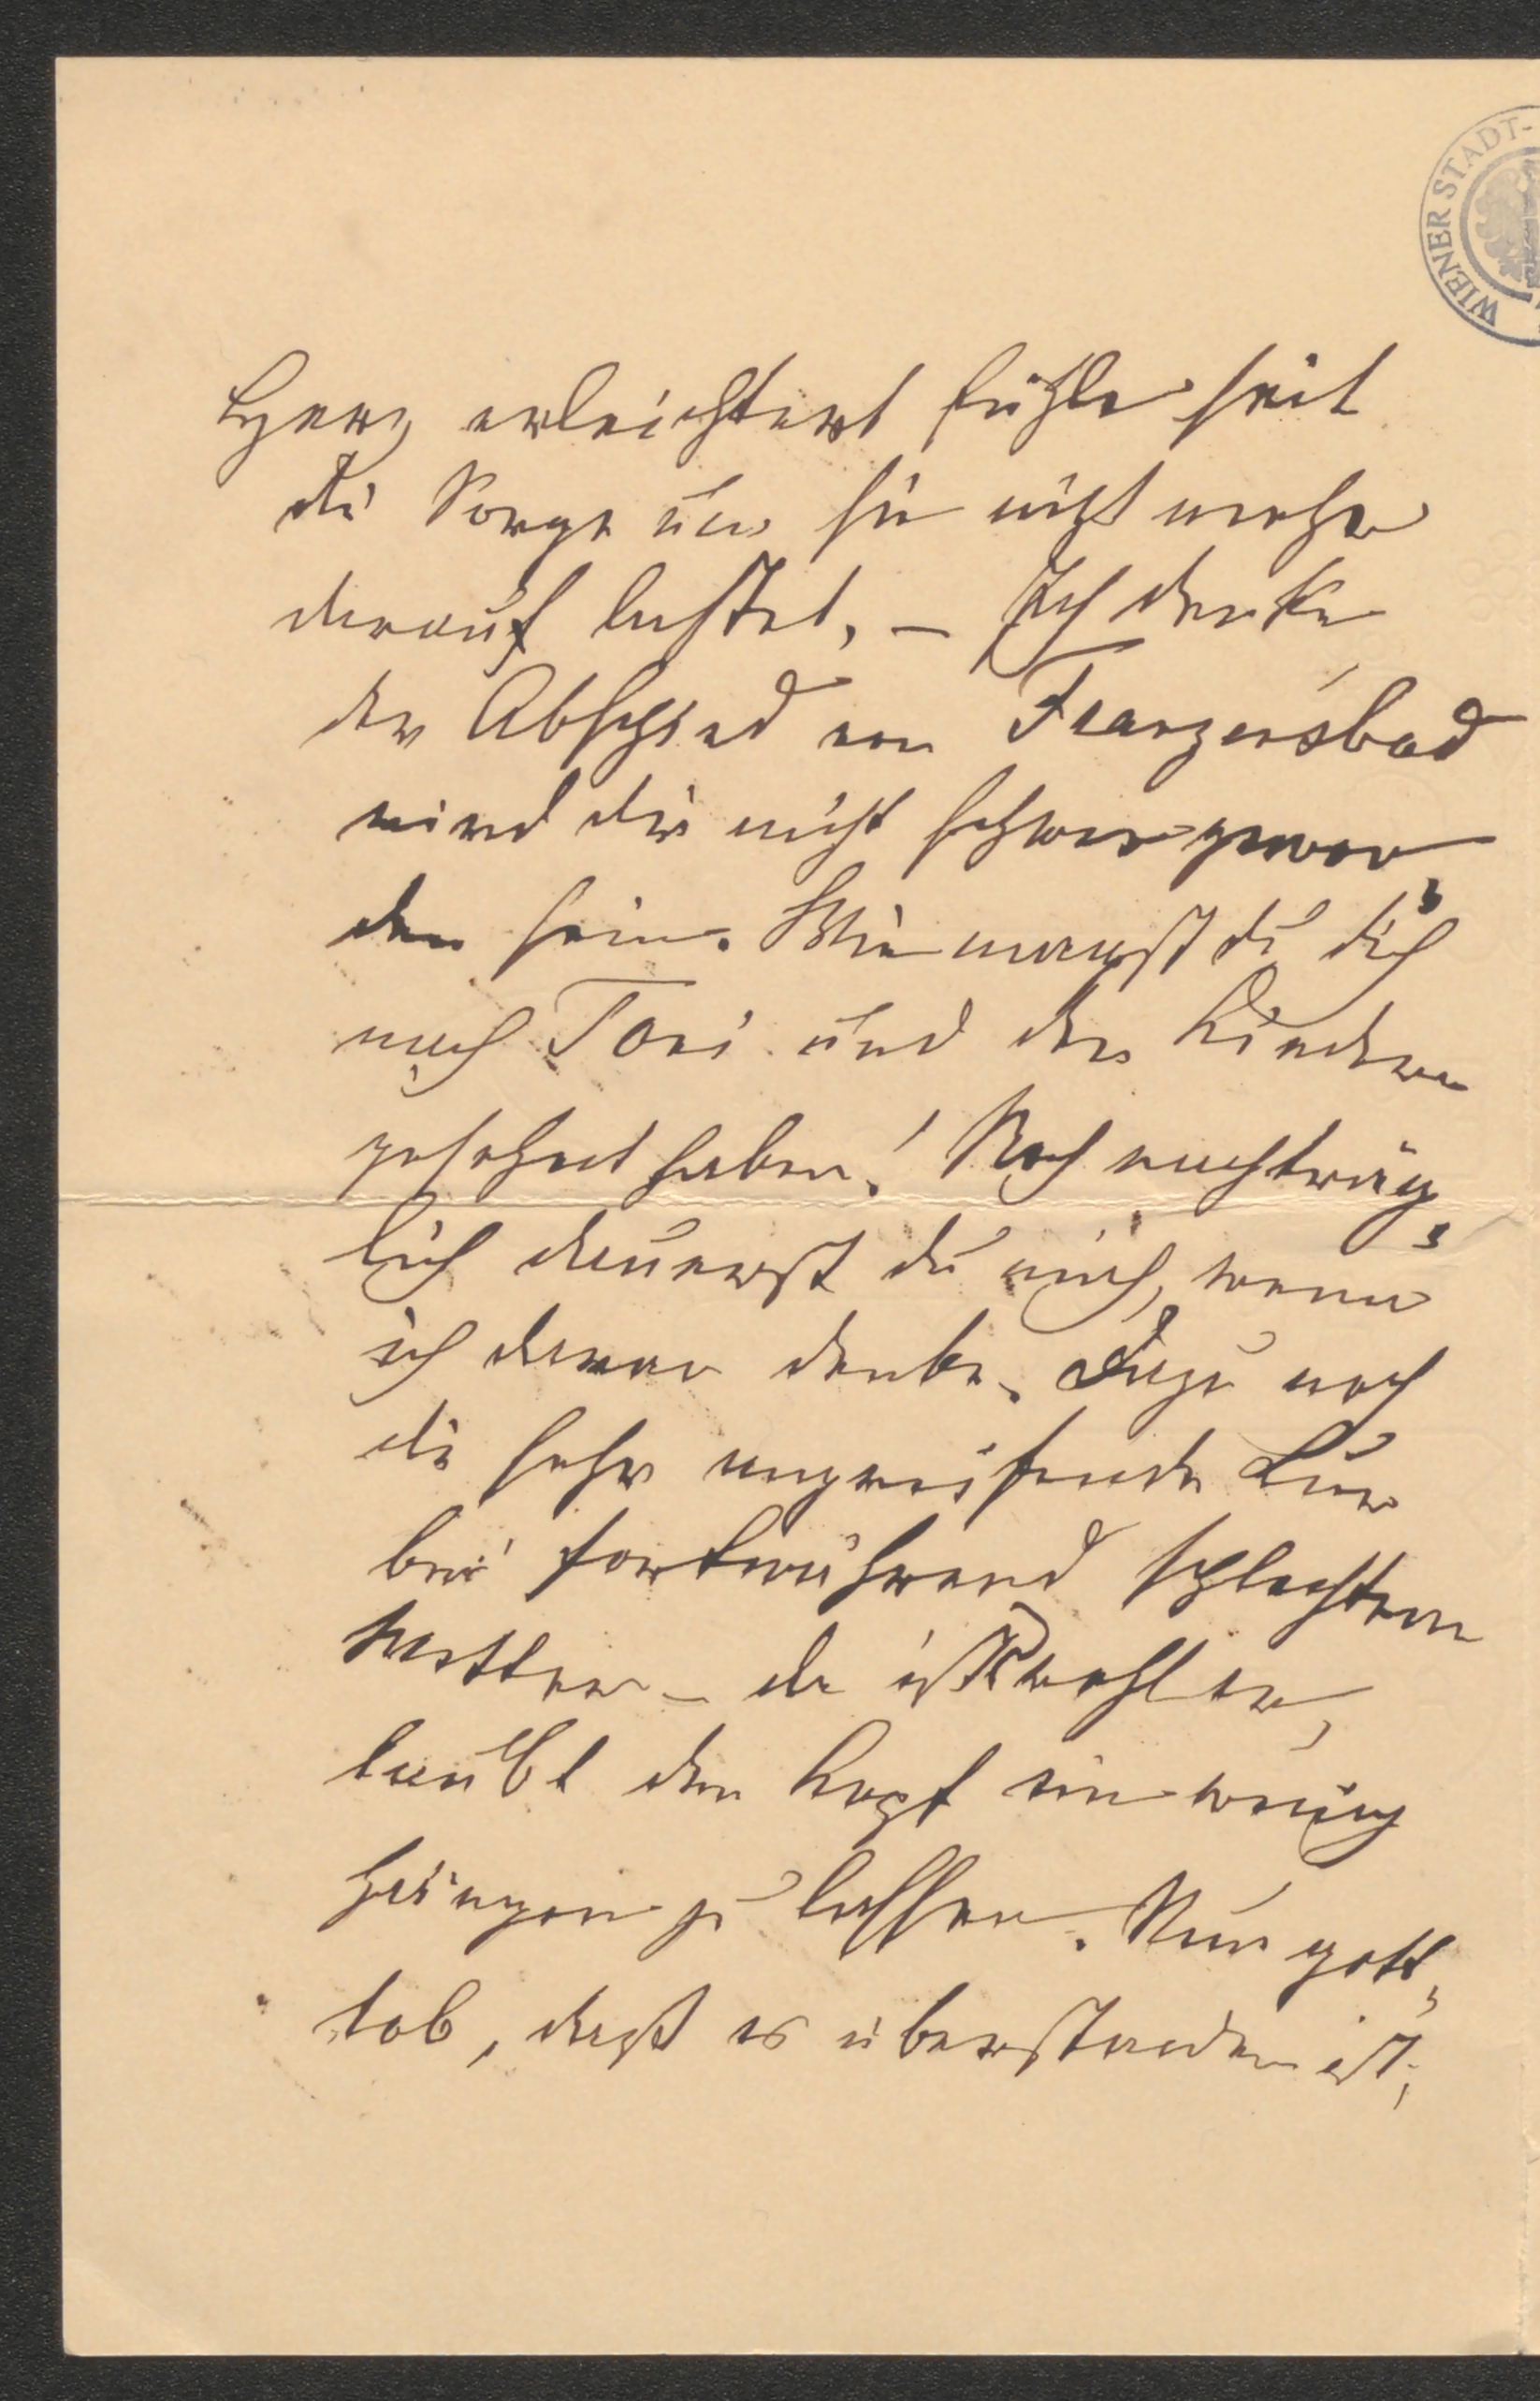 WIENER STADT-
Herz erleichtert fühle seit
die Sorge um sie nicht mehr
darauf lastet. – Ich denke
der Abschied von Franzensbad
wird dir nicht schwer gewor„
den sein. Wie magst du dich
nach Toni und den Kindern
gesehnt haben! Noch nachträg„
lich dauerst du mich, wenn
ich daran denke. Dazu noch
die sehr angreifende Kur
bei fortwährend schlechtem
Wetter – da ist wohl er„
laubt den Kopf ein wenig
hängen zu lassen. Nun gott„
lob, daß es überstanden ist,